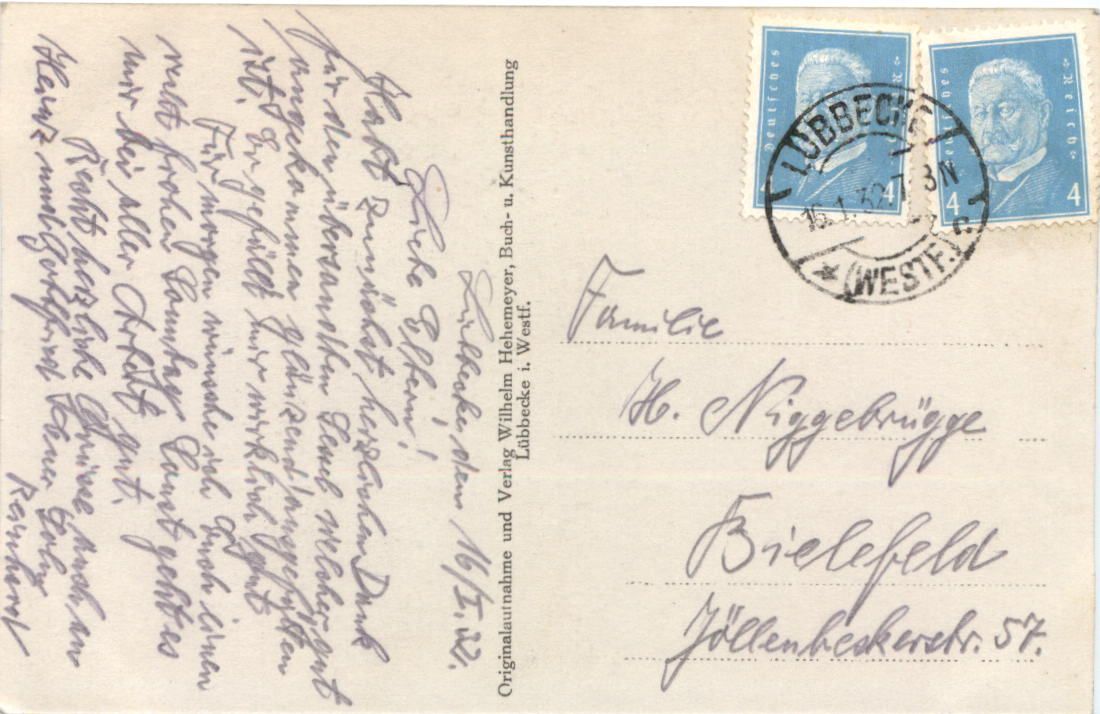 Lübbecke den 16/I.32.
Liebe Eltern!
Habt zunächst herzlichen Dank
für den übersandten welcher gut
angekommen
ist. Er gefällt mir wirklich gut
Für morgen wünsche ich Euch einen
recht frohen Sonntag Sonst geht es
mir bei aller Arbeit gut.
Recht herzliche Grüsse auch an
Heinz und Gottfried Euer Sohn
Reinhard
Originalaufnahme und Verlag Wilhelm Hehemeyer, Buch- u. Kunsthandlung
Lübbecke i. Westf.
Deutsches Reich
4
Deutsches Reich
4 4
LÜBBECKE
16.1.32.7-8N
* (WESTF.) c
Familie
H. Niggebrügge
Bielefeld
Jöllenbeckerstr. 57.